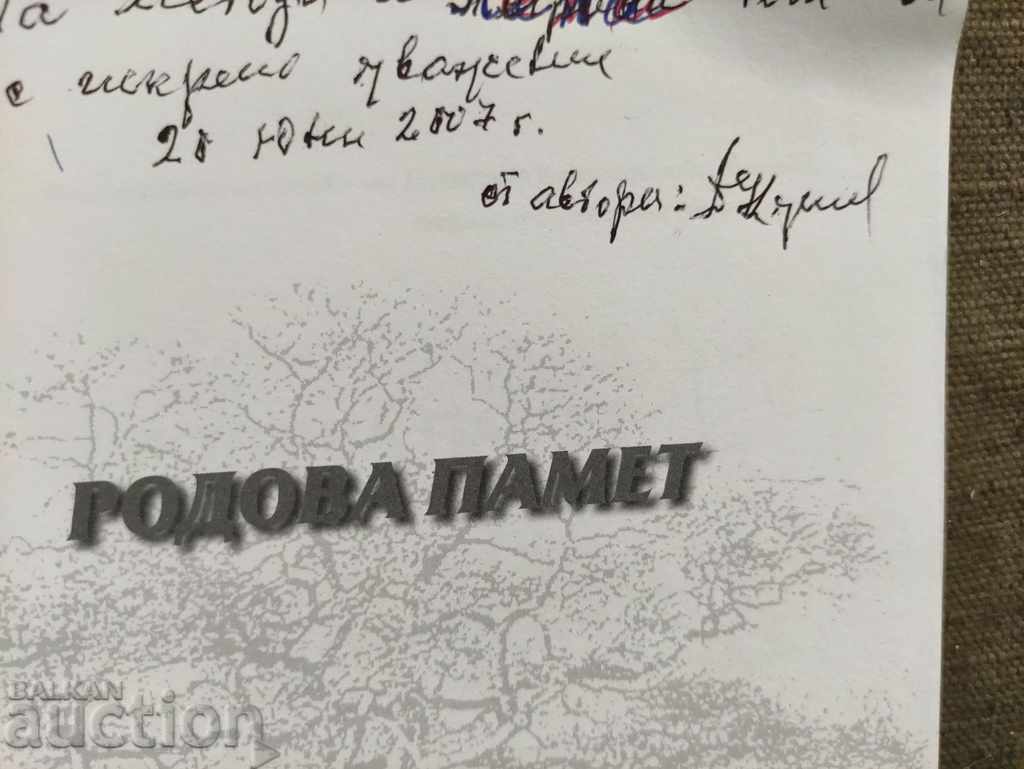 На Методи и
с искрено уважение
26 Юни 2007 г.
от автора:
РОДОВА ПАМЕТ
BALKAN
auction